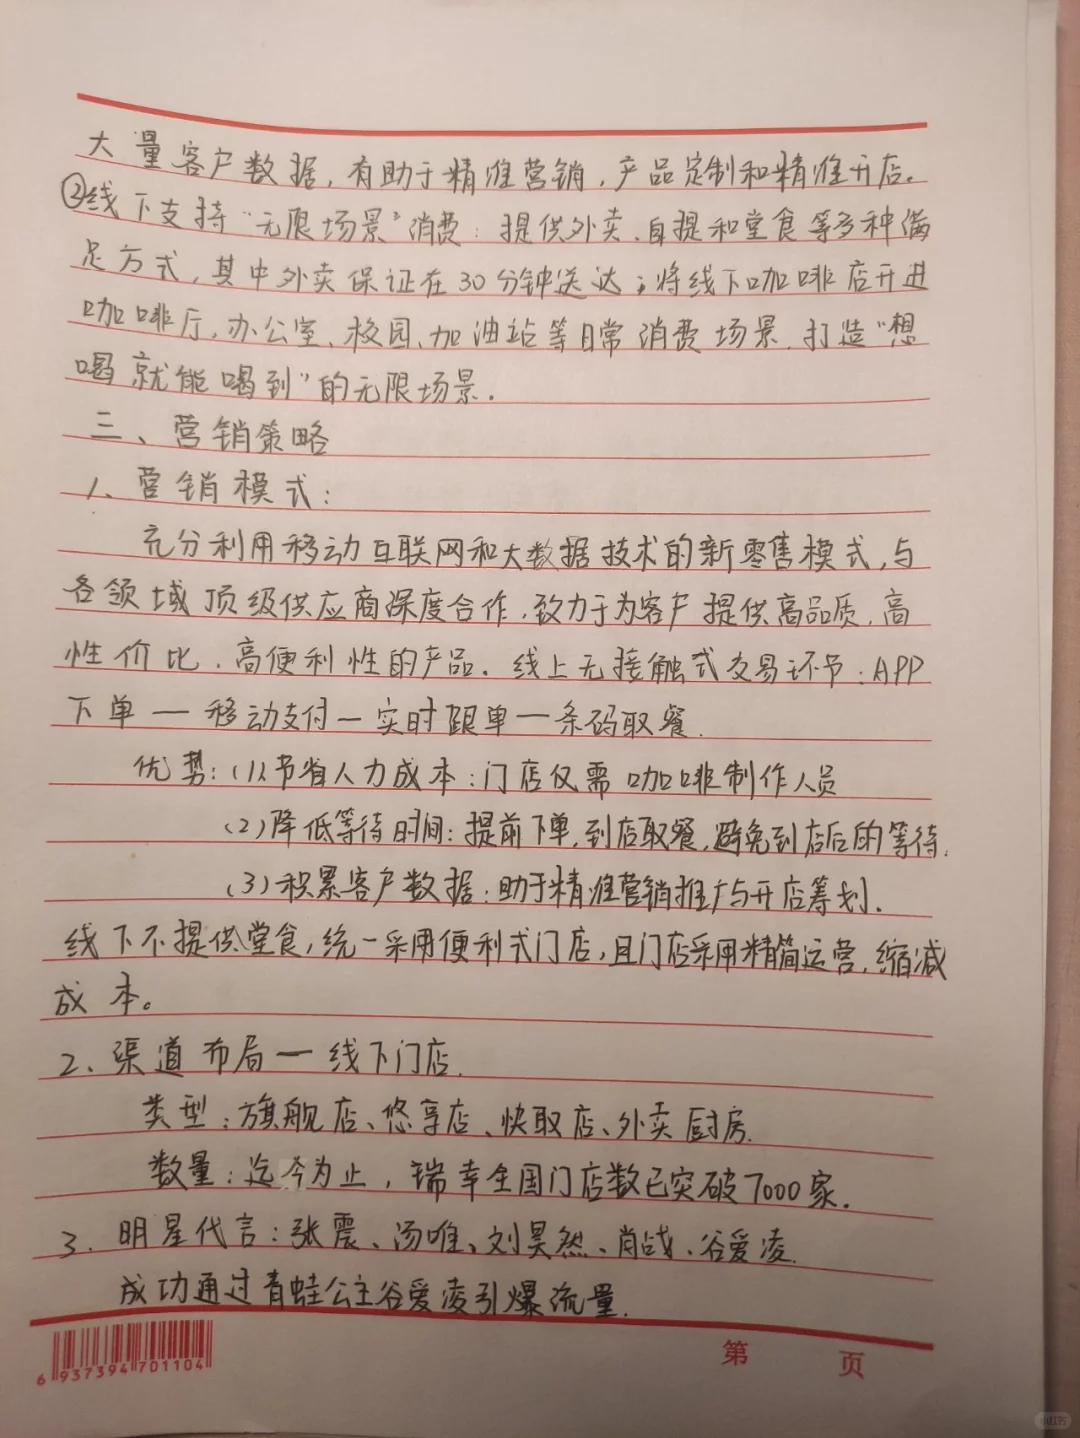 大量客户数据，有助于精准营销，产品定制和精准开店。
②线下支持“无限场景”消费：提供外卖、自提和堂食等多种满
足方式，其中外卖保证在30分钟送达；将线下咖啡店开进
咖啡厅、办公室、校园、加油站等日常消费场景，打造“想
喝就能喝到”的无限场景.
三、营销策略
1、营销模式：
充分利用移动互联网和大数据技术的新零售模式，与
各领域顶级供应商深度合作，致力于为客户提供高品质，高
性价比，高便利性的产品. 线上无接触式交易环节：APP
下单—移动支付—实时跟单—条码取餐.
优势：(1)节省人力成本：门店仅需咖啡制作人员
(2)降低等待时间：提前下单，到店取餐，避免到店后的等待.
(3)积累客户数据：助于精准营销推广与开店筹划.
线下不提供堂食，统一采用便利式门店，且门店采用精简运营，缩减
成本。
2、渠道布局—线下门店.
类型：旗舰店、悠享店、快取店、外卖厨房.
数量：迄今为止，瑞幸全国门店数已突破7000家.
3. 明星代言：张震、汤唯、刘昊然、肖战、谷爱凌.
成功通过青蛙公主谷爱凌引爆流量.
6 937394 701104
第 页
小红书